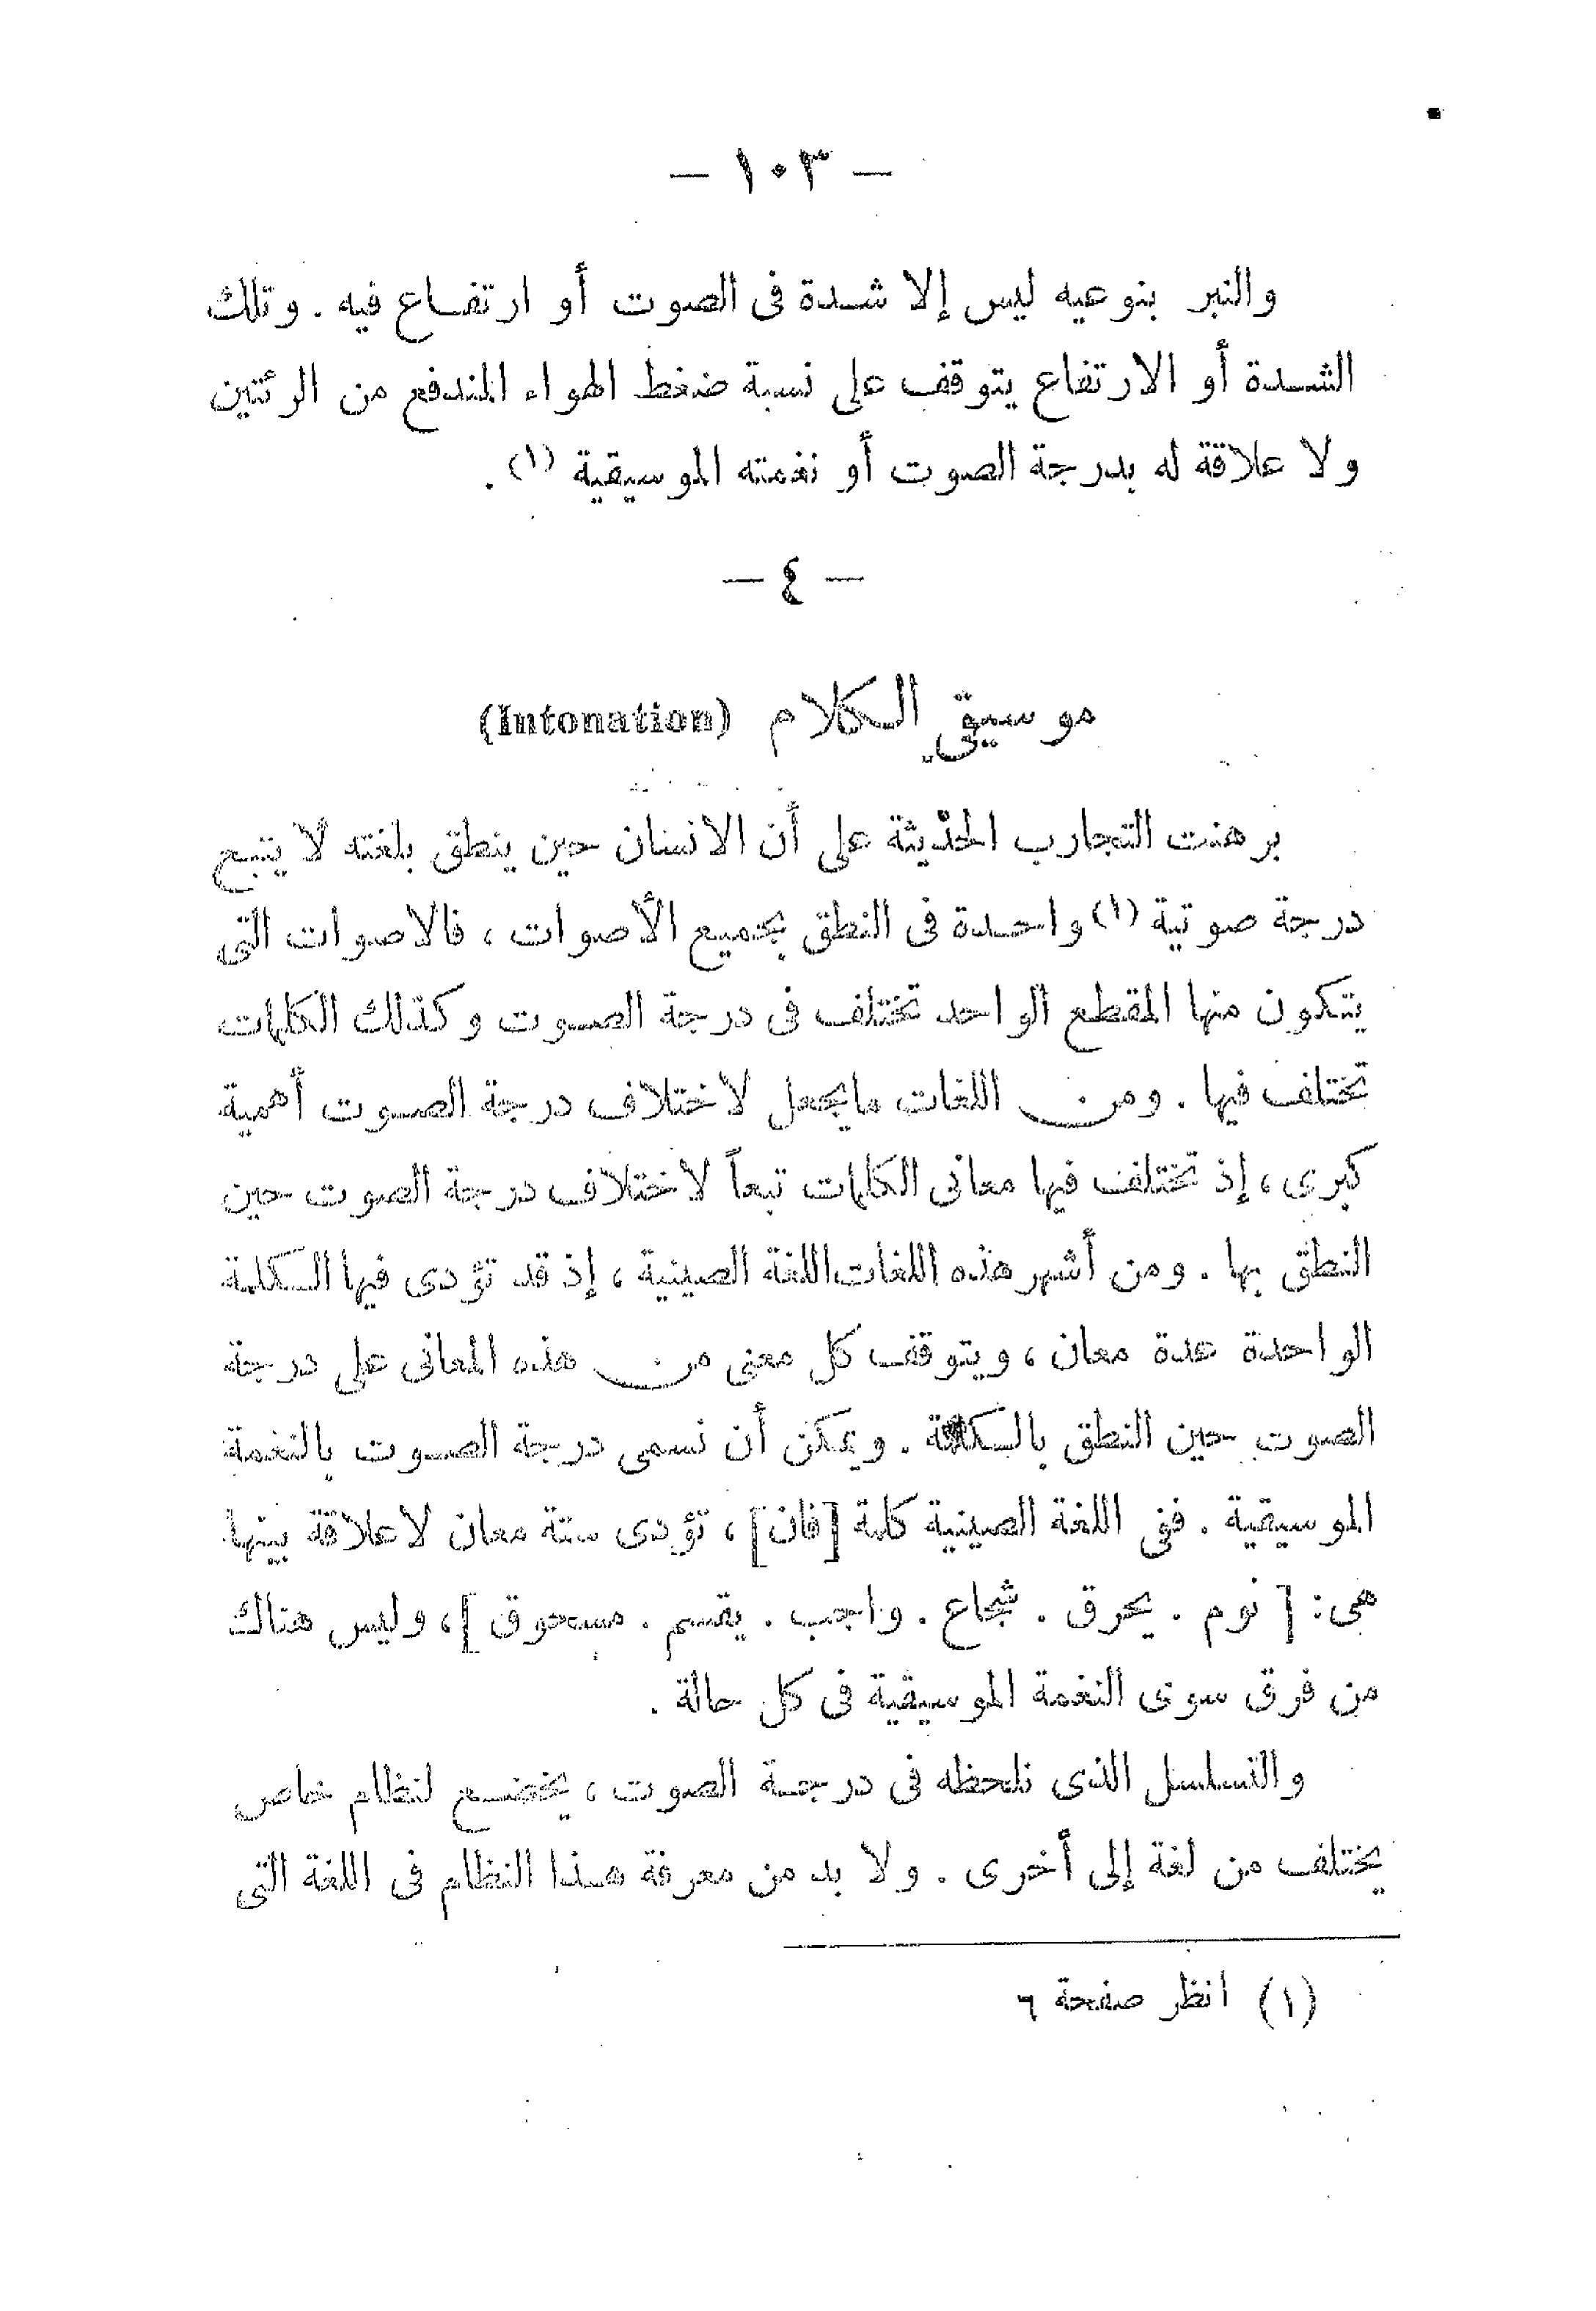 — ١٠٣ —
والنبر بنوعيه ليس إلا شدة فى الصوت أو ارتفاع فيه . وتلك
الشدة أو الارتفاع يتوقف على نسبة ضغط الهواء المندفع من الرئتين
ولا علاقة له بدرجة الصوت أو نغمته الموسيقية (١) .
— ٤ —
موسيقى الكلام (Intonation)
برهنت التجارب الحديثة على أن الانسان حين ينطق بلغته لا يتبع
درجة صوتية (١) واحدة فى النطق بجميع الأصوات ، فالاصوات التى
يتكون منها المقطع الواحد تختلف فى درجة الصوت وكذلك الكلمات
تختلف فيها . ومن اللغات ما يجعل لاختلاف درجة الصوت أهمية
كبرى ، إذ تختلف فيها معانى الكلمات تبعاً لاختلاف درجة الصوت حين
النطق بها . ومن أشهر هذه اللغات اللغة الصينية ، إذ قد تؤدى فيها الكلمة
الواحدة عدة معان ، ويتوقف كل معنى من هذه المعانى على درجة
الصوت حين النطق بالكلمة . ويمكن أن نسمى درجة الصوت بالنغمة
الموسيقية . ففى اللغة الصينية كلمة [فان] ، تؤدى ستة معان لا علاقة بينها
هى : [ نوم . يحرق . شجاع . واجب . يقسم . مسحوق ] ، وليس هناك
من فرق سوى النغمة الموسيقية فى كل حالة .
والتسلسل الذى نلحظه فى درجة الصوت ، يخضع لنظام خاص
يختلف من لغة إلى أخرى . ولا بد من معرفة هذا النظام فى اللغة التى
(١) انظر صفحة ٦